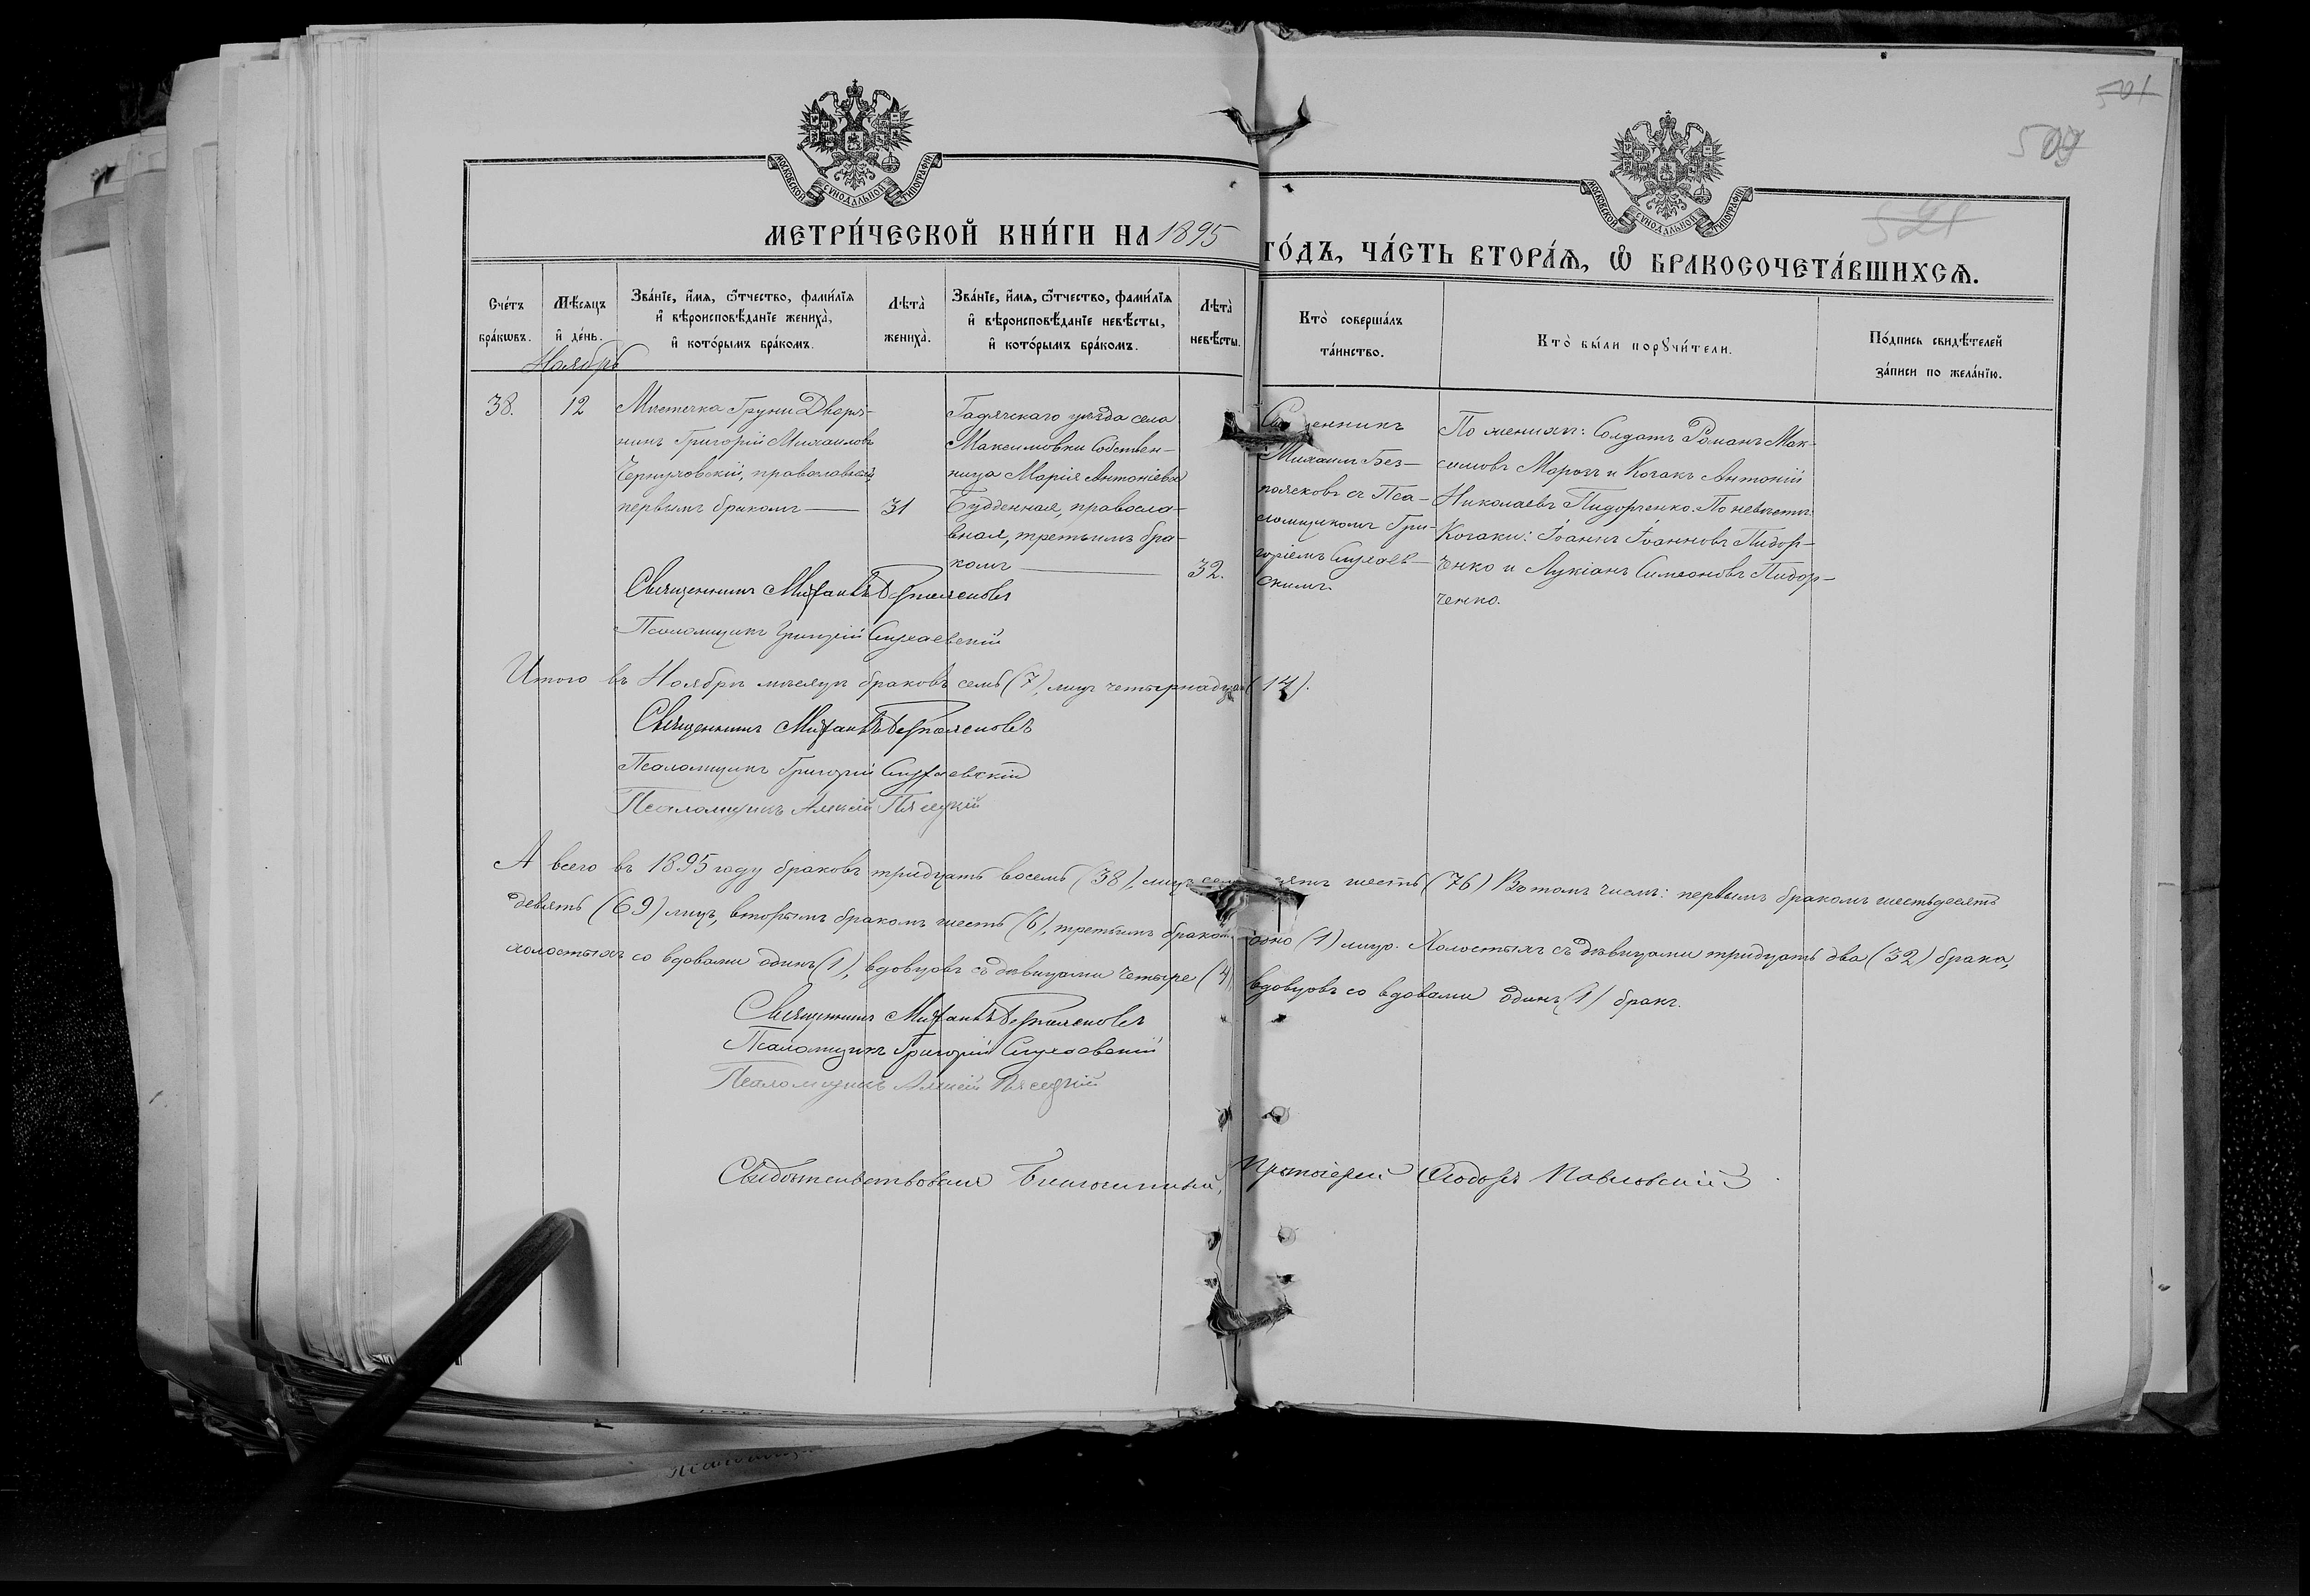 501
509
МОСКОВСКОЙ СѴНОДАЛЬНОЙ ТИПОГРАФІИ
МОСКОВСКОЙ СѴНОДАЛЬНОЙ ТИПОГРАФІИ
521
МЕТРИ́ЧЕСКОЙ КНИ́ГИ НА 1895 ГО́ДЪ, ЧА́СТЬ ВТОРА́Ѧ, Ѡ҆ БРАКОСОЧЕТА́ВШИХСѦ.
Сче́тъ
бра́кѡвъ.
Мѣ́сѧцъ
и҆ де́нь.
Зва́нїе, и҆́мѧ, ѻ҆́тчество, фами́лїѧ
и҆ вѣроисповѣ́данїе жениха̀,
и҆ кото́рымъ бра́комъ.
Лѣта̀
жениха̀.
Зва́нїе, и҆́мѧ, ѻ҆́тчество, фами́лїѧ
и҆ вѣроисповѣ́данїе невѣ́сты,
и҆ кото́рымъ бра́комъ.
Лѣта̀
невѣ́сты.
Кто̀ соверша́лъ
та́инство.
Кто̀ бы́ли порꙋчи́тели.
По́дпись свидѣ́телей
за́писи по жела́нїю.
Ноябрь
38.
12
Мѣстечка Груни Дворя-
нинъ Григорій Михаиловъ
Чернуховскій, православный,
первымъ бракомъ
31
Гадячскаго уѣзда села
Максимовки Собствен-
ница Марія Антоніева
Будденная, правосла-
вная, третьимъ бра-
комъ
32.
Священникъ
Михаилъ Без-
поясковъ съ Пса-
ломщикомъ Гри-
горіемъ Слухаев-
скимъ.
По женихѣ: Солдатъ Романъ Мак-
симовъ Морозъ и Козакъ Антоній
Николаевъ Пидорченко. По невѣстѣ:
Козаки: Іоаннъ Іоанновъ Пидор-
ченко и Лукіанъ Симеоновъ Пидор-
ченко.
Священникъ Михаилъ Безпоясковъ
Псаломщикъ Григорій Слухаевскій
Итого въ Ноябрѣ мѣсяцѣ браковъ семь (7), лицъ четырнадцать (14).
Священникъ Михаилъ Безпоясковъ
Псаломщикъ Григорій Слухаевскій
Псаломщикъ Алексій Пясецкій
А всего въ 1895 году браковъ тридцать восемь (38), лицъ семьдесятъ шесть (76) Въ томъ числѣ: первымъ бракомъ шестьдесятъ
девять (69) лицъ, вторымъ бракомъ шесть (6), третьимъ бракомъ одно (1) лицо. Холостыхъ съ дѣвицами тридцать два (32) брака,
холостыхъ со вдовами одинъ (1), вдовцовъ съ дѣвицами четыре (4), вдовцовъ со вдовами одинъ (1) бракъ.
Священникъ Михаилъ Безпоясковъ
Псаломщикъ Григорій Слухаевскій
Псаломщикъ Алексій Пясецкій
Свидѣтельствовалъ Благочинный, Протоіерей Ѳеодоръ Павловскій